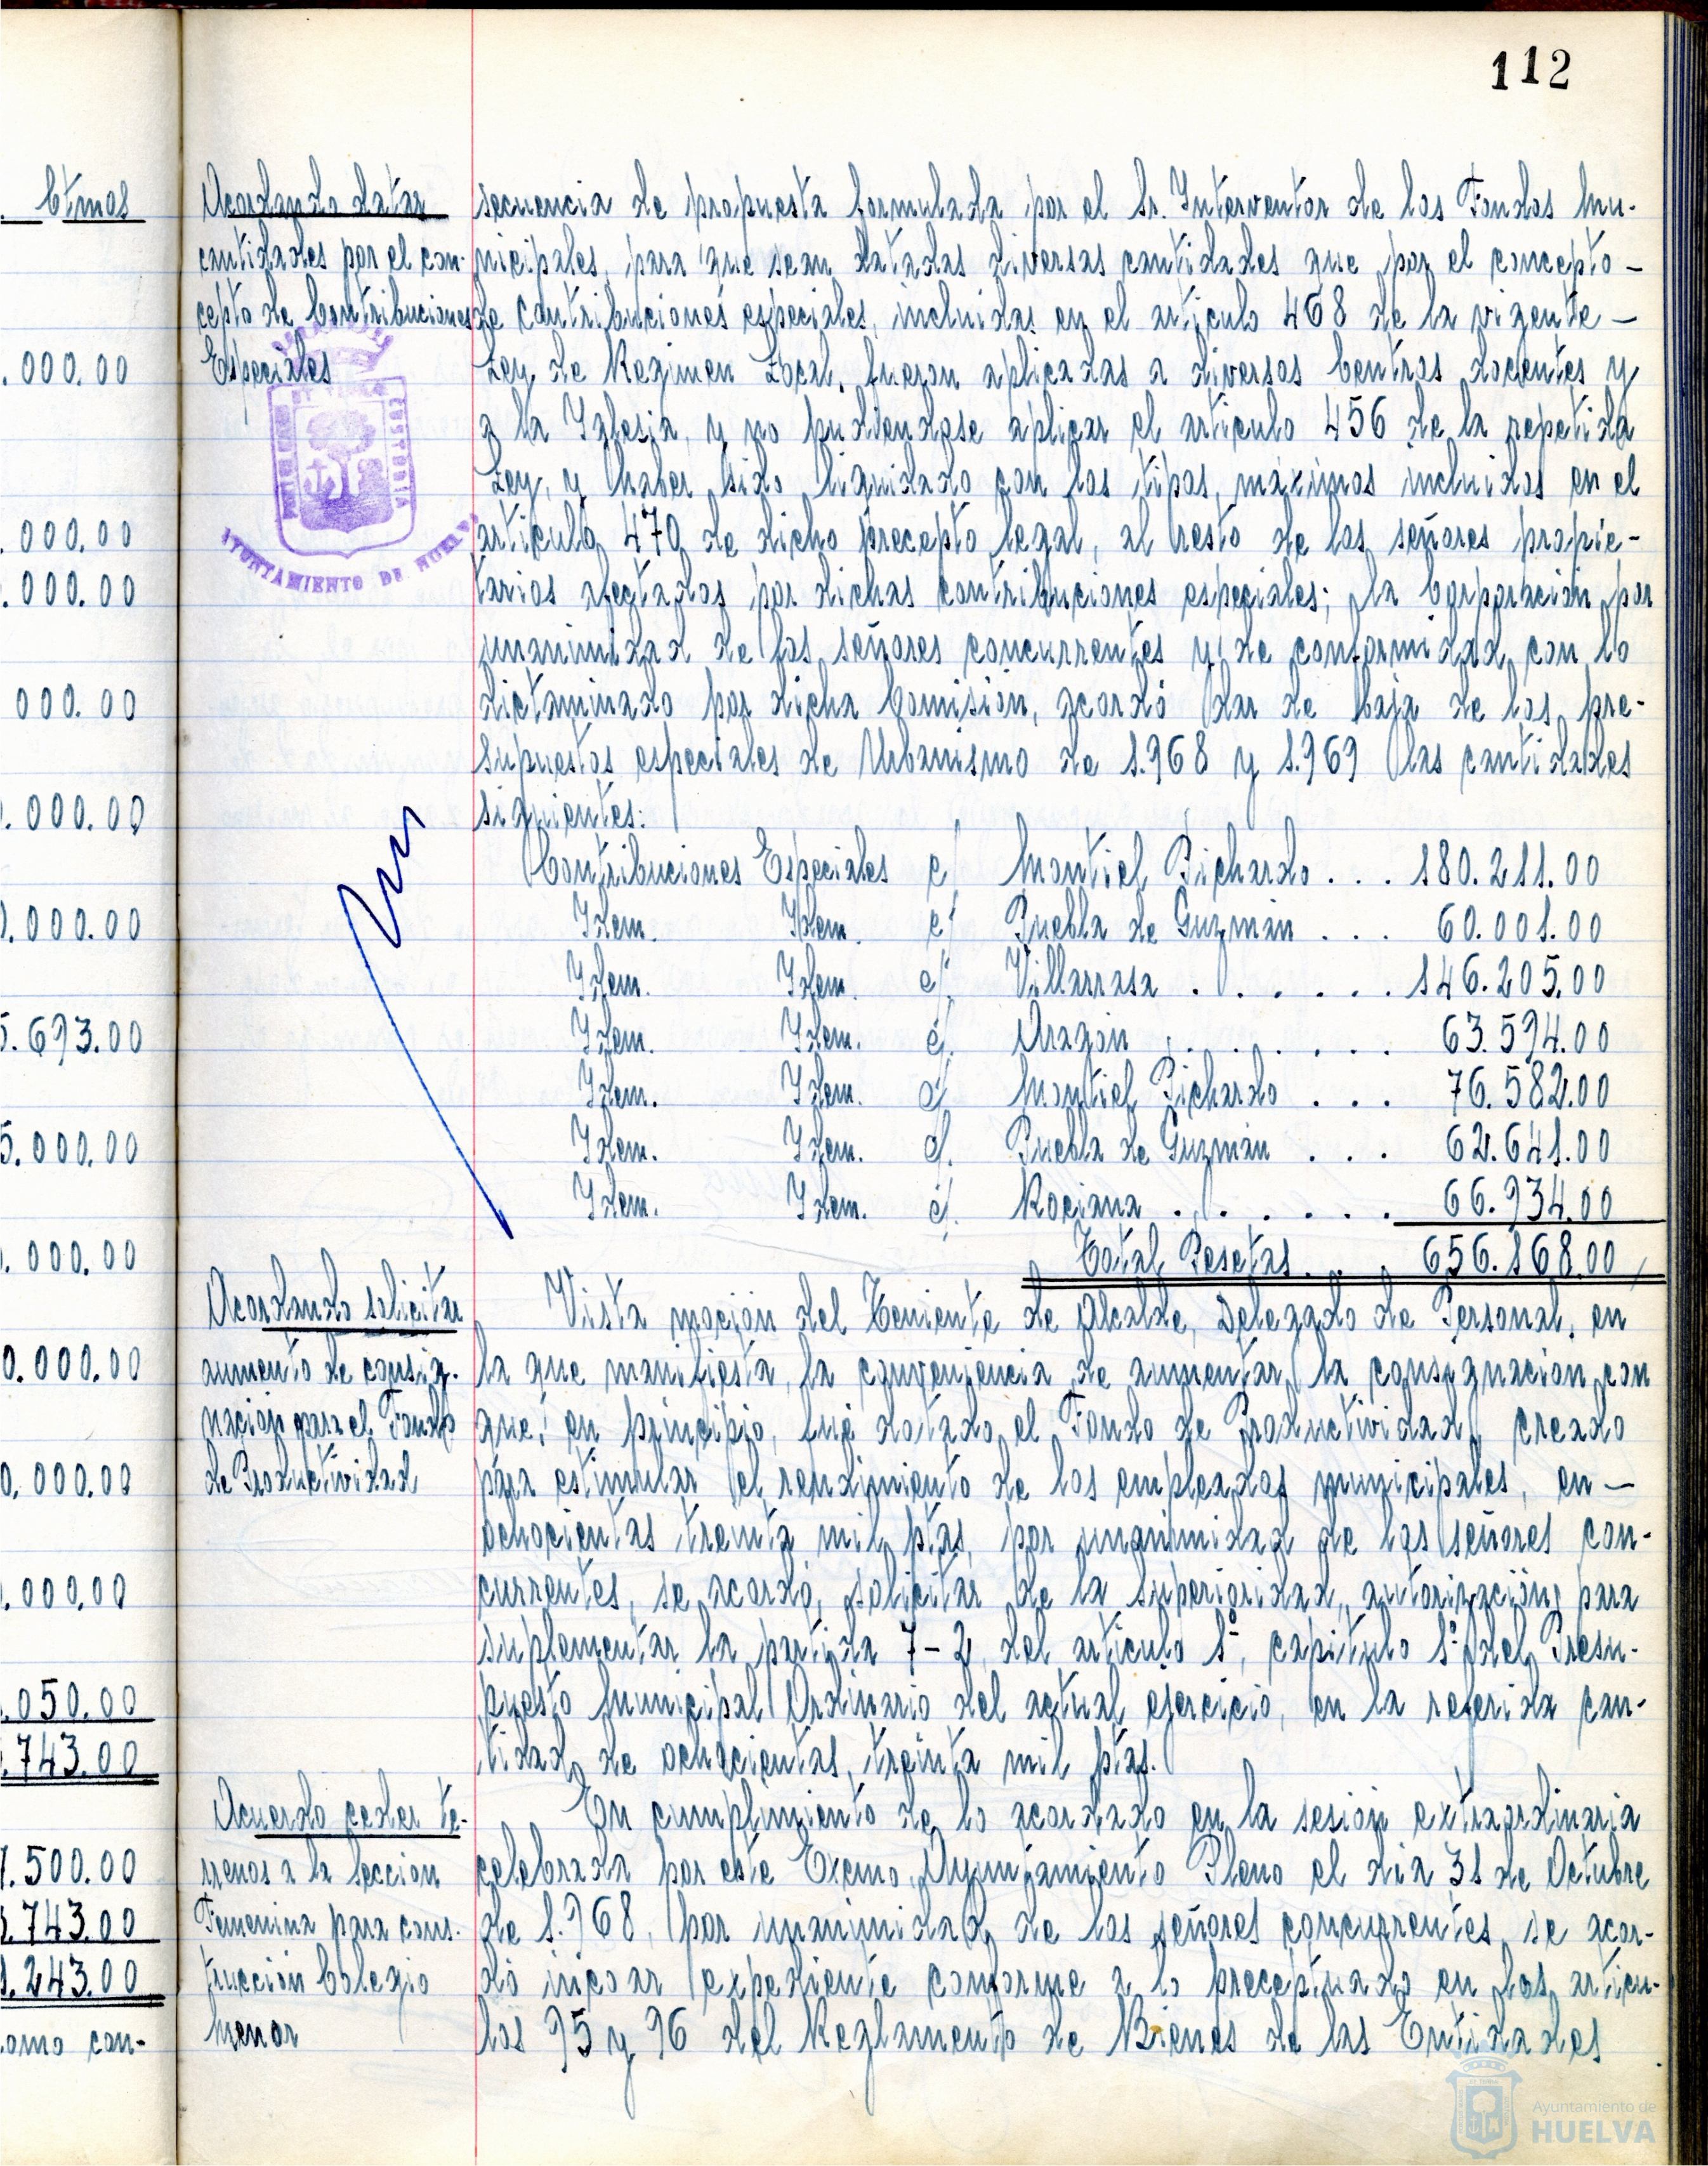 112
Ctmos
.000.00
.000.00
.000.00
000.00
.000.00
.000.00
5.693.00
5.000.00
.000.00
0.000.00
0.000.00
.000,00
.050.00
.743.00
7.500.00
.743.00
.243.00
omo con-
Acordando datar
cantidades por el con-
cepto de Contribuciones
Especiales
AYUNTAMIENTO DE HUELVA
secuencia de propuesta formulada por el Sr. Interventor de los Fondos Mu-
nicipales, para que sean datadas diversas cantidades que por el concepto -
de contribuciones especiales, incluidas en el articulo 468 de la vigente -
Ley de Regimen Local, fueron aplicadas a diversos Centros docentes y
a la Iglesia, y no pudiendose aplicar el articulo 456 de la repetida
Ley, y haber sido liquidado con los tipos máximos incluidos en el
articulo 470 de dicho precepto legal, al resto de los señores propie-
tarios afectados por dichas contribuciones especiales; la Corporación por
unanimidad de los señores concurrentes y de conformidad con lo
dictaminado por dicha Comisión, acordó dar de baja de los pre-
supuestos especiales de Urbanismo de 1.968 y 1.969 las cantidades
siguientes:
Contribuciones Especiales c/ Montiel Pichardo . . . 180.211.00
Idem. Idem. c/ Puebla de Guzmán . . . 60.001.00
Idem. Idem. c/. Villarrasa . . . . . . 146.205,00
Idem. Idem. c/. Aragón . . . . . . . 63.594.00
Idem. Idem. c/. Montiel Pichardo . . . 76.582.00
Idem. Idem. c/. Puebla de Guzmán . . . 62.641.00
Idem. Idem. c/. Rociana . . . . . . 66.934.00
Total Pesetas . . . 656.168.00
Acordando solicitar
aumento de consig-
nación para el Fondo
de Productividad
Vista moción del Teniente de Alcalde, Delegado de Personal, en
la que manifiesta la conveniencia de aumentar la consignación con
que, en principio, fué dotado el Fondo de Productividad, creado
para estimular el rendimiento de los empleados municipales, en -
ochocientas treinta mil ptas, por unanimidad de los señores con-
currentes, se acordó, solicitar de la Superioridad, autorización para
suplementar la partida 7-2, del articulo 1º, capitulo 1º del Presu-
puesto Municipal Ordinario del actual ejercicio, en la referida can-
tidad de ochocientas treinta mil ptas.
Acuerdo ceder te-
rrenos a la Sección
Femenina para cons-
trucción Colegio
menor
En cumplimiento de lo acordado en la sesión extraordinaria
celebrada por este Excmo. Ayuntamiento Pleno el dia 31 de Octubre
de 1.968, por unanimidad de los señores concurrentes, se acor-
dó incoar expediente conforme a lo preceptuado en los articu-
los 95 y 96 del Reglamento de Bienes de las Entidades
Ayuntamiento de
HUELVA